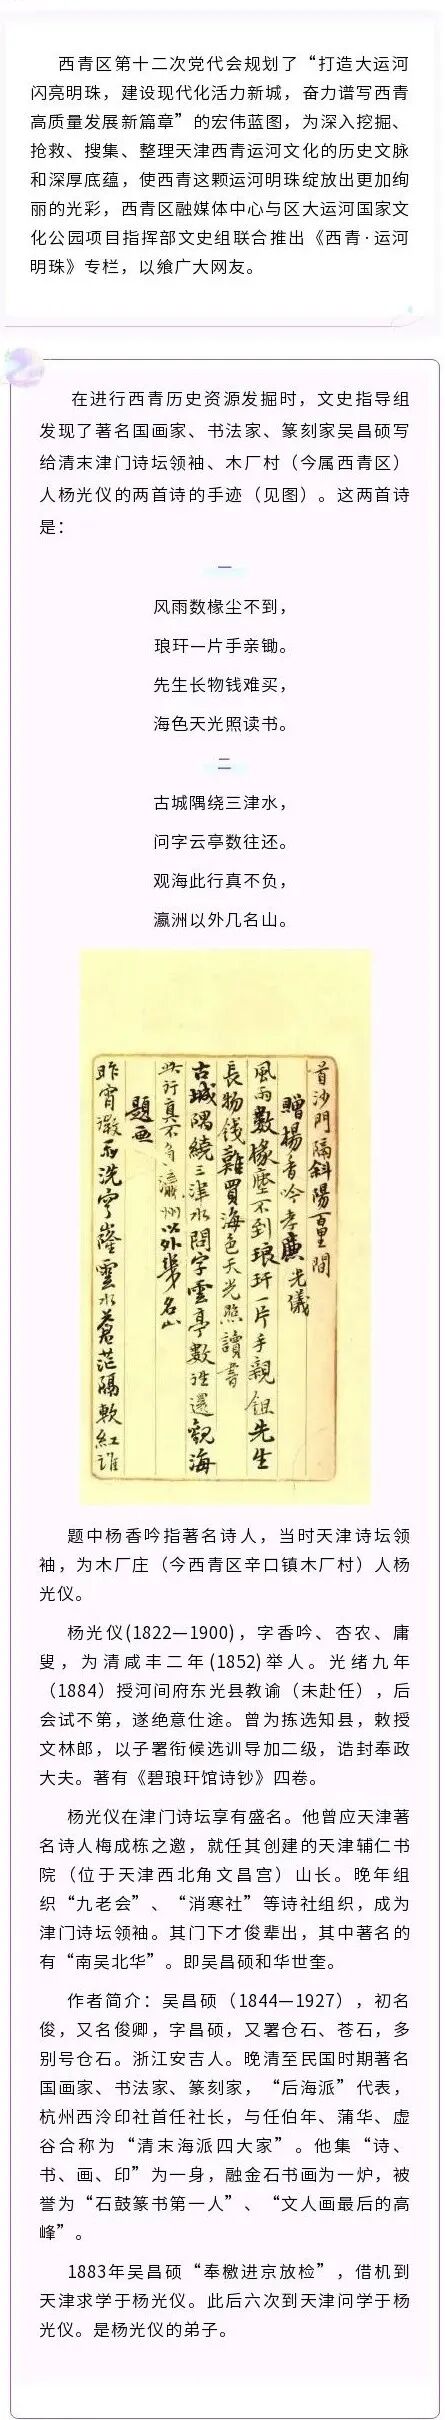 西青区第十二次党代会规划了“打造大运河
闪亮明珠，建设现代化活力新城，奋力谱写西青
高质量发展新篇章”的宏伟蓝图，为深入挖掘、
抢救、搜集、整理天津西青运河文化的历史文脉
和深厚底蕴，使西青这颗运河明珠绽放出更加绚
丽的光彩，西青区融媒体中心与区大运河国家文
化公园项目指挥部文史组联合推出《西青·运河
明珠》专栏，以飨广大网友。
在进行西青历史资源发掘时，文史指导组
发现了著名国画家、书法家、篆刻家吴昌硕写
给清末津门诗坛领袖、木厂村（今属西青区）
人杨光仪的两首诗的手迹（见图）。这两首诗
是：
一
风雨数椽尘不到，
琅玕一片手亲锄。
先生长物钱难买，
海色天光照读书。
二
古城隅绕三津水，
问字云亭数往还。
观海此行真不负，
瀛洲以外几名山。
首沙門隔斜陽百里間
贈楊香吟孝廉光儀
風雨數椽塵不到琅玕一片手親鉏先生
長物錢難買海色天光照讀書
古城隅繞三津水問字雲亭數往還觀海
此行真不負瀛州以外幾名山
題画
昨宵微雨洗穹窿雲水蒼茫隔軟紅誰
题中杨香吟指著名诗人，当时天津诗坛领
袖，为木厂庄（今西青区辛口镇木厂村）人杨
光仪。
杨光仪(1822—1900)，字香吟、杏农、庸
叟，为清咸丰二年(1852)举人。光绪九年
（1884）授河间府东光县教谕（未赴任），后
会试不第，遂绝意仕途。曾为拣选知县，敕授
文林郎，以子署衔候选训导加二级，诰封奉政
大夫。著有《碧琅玕馆诗钞》四卷。
杨光仪在津门诗坛享有盛名。他曾应天津著
名诗人梅成栋之邀，就任其创建的天津辅仁书
院（位于天津西北角文昌宫）山长。晚年组
织“九老会”、“消寒社”等诗社组织，成为
津门诗坛领袖。其门下才俊辈出，其中著名的
有“南吴北华”。即吴昌硕和华世奎。
作者简介：吴昌硕（1844—1927），初名
俊，又名俊卿，字昌硕，又署仓石、苍石，多
别号仓石。浙江安吉人。晚清至民国时期著名
国画家、书法家、篆刻家，“后海派”代表，
杭州西泠印社首任社长，与任伯年、蒲华、虚
谷合称为“清末海派四大家”。他集“诗、
书、画、印”为一身，融金石书画为一炉，被
誉为“石鼓篆书第一人”、“文人画最后的高
峰”。
1883年吴昌硕“奉檄进京放检”，借机到
天津求学于杨光仪。此后六次到天津问学于杨
光仪。是杨光仪的弟子。